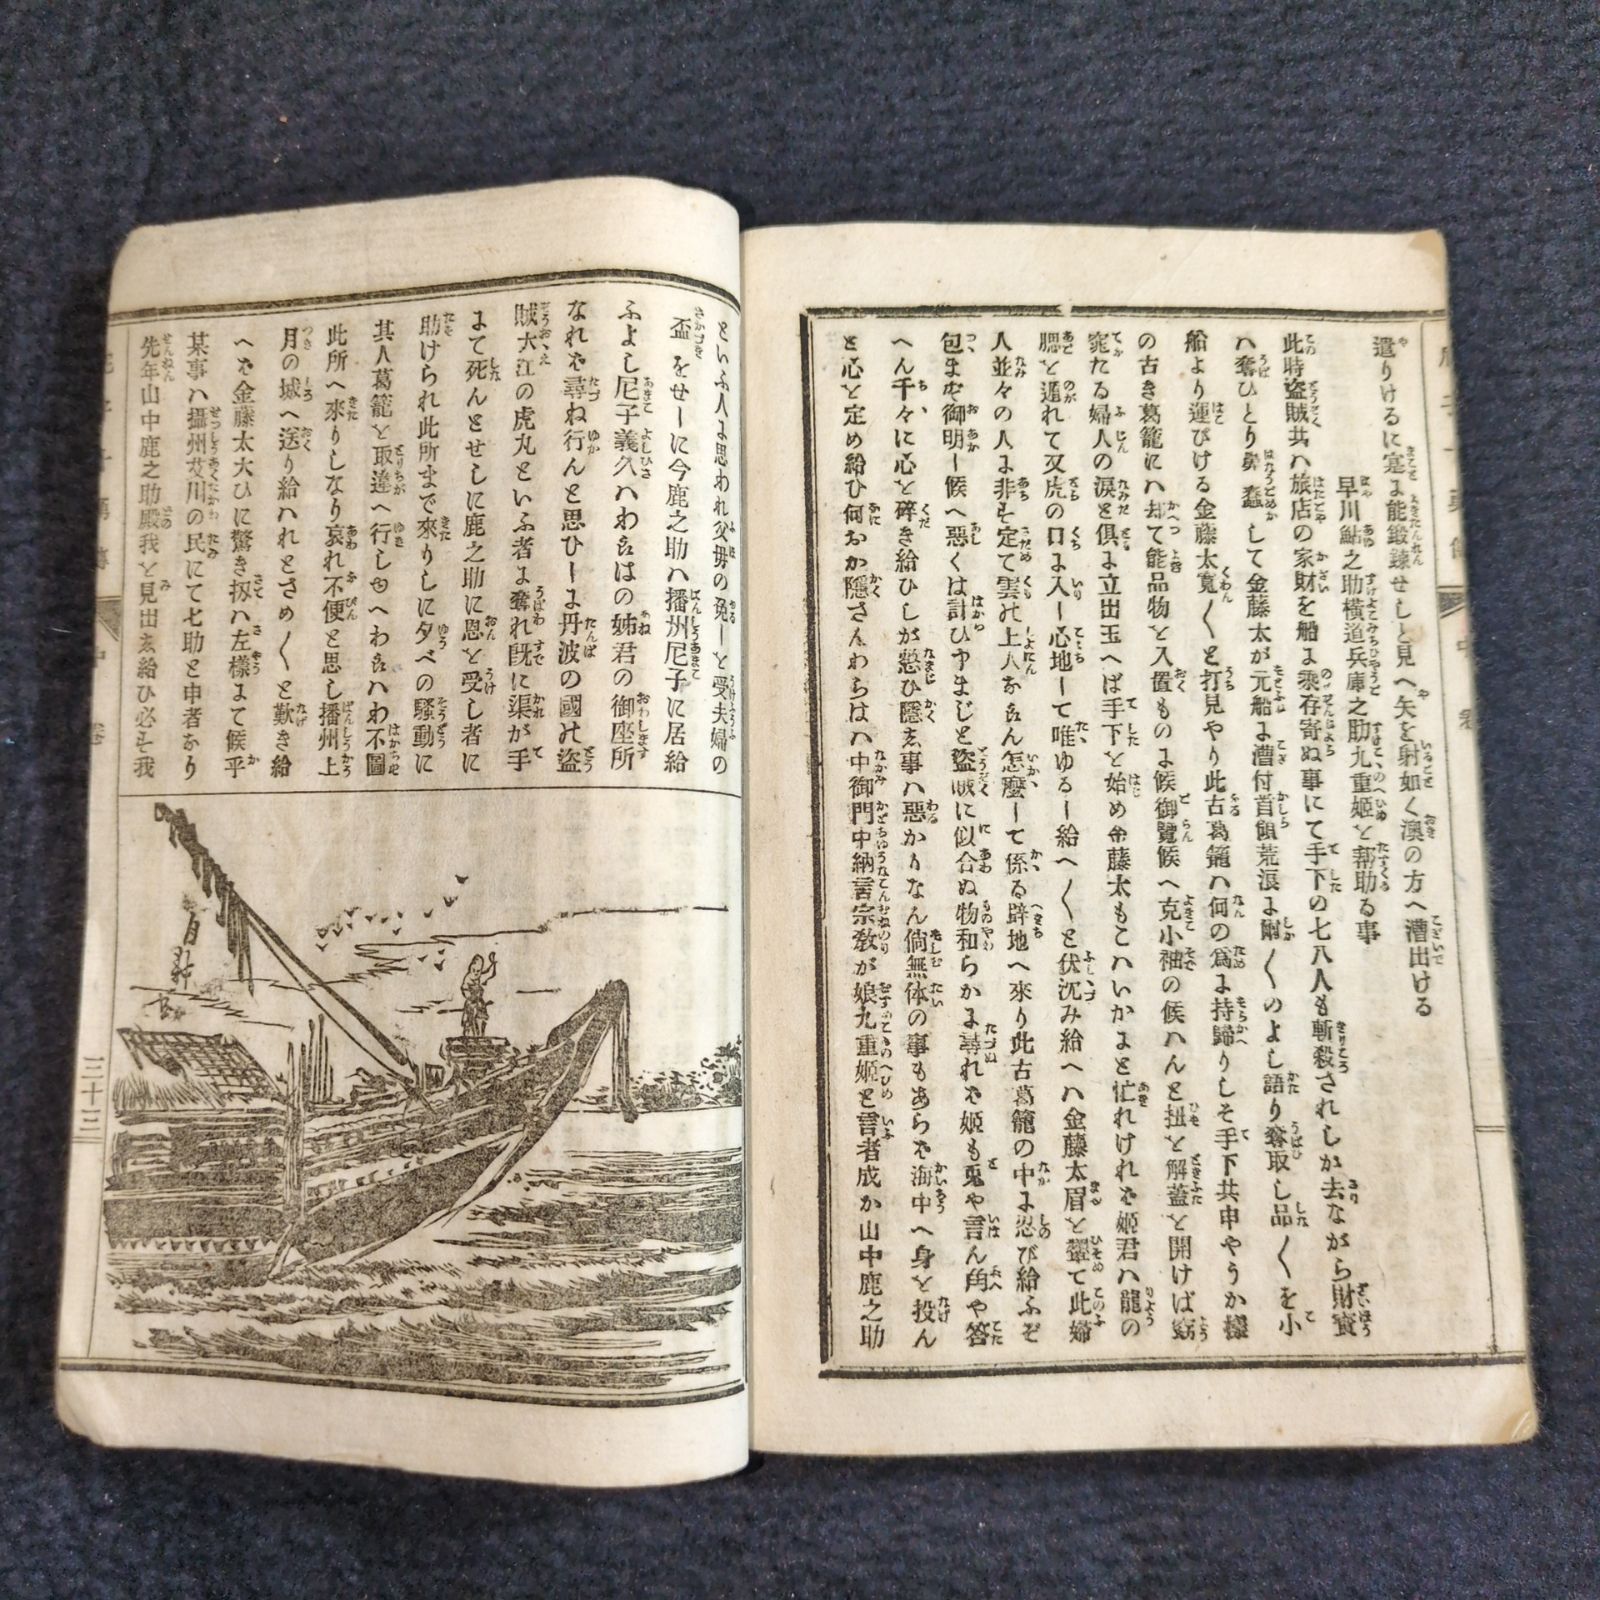 遣りけるに寔よ能鍛錬せしと見へ矢を射如く澳の方へ漕出ける
早川鮎之助横道兵庫之助九重姫と帮助る事
此時盗賊共ハ旅店の家財を船よ乘存寄ぬ事にて手下の七八人も斬殺されしか去ながら財寳
ハ奪ひとり鼻蠢して金藤太が元船よ漕付首領荒浪よ爾〱のよし語り奪取し品〱を小
船より運びける金藤太寬〱と打見やり此古葛籠ハ何の爲よ持歸りしそ手下共申やうか樣
の古き葛籠にハ却て能品物と入置ものよ候御覽候へ克小袖の候ハんと扭と解蓋と開けば窈
窕たる婦人の涙と俱よ立出玉へば手下と始め金藤太もこハいかよと忙れけれバ姫君ハ龍の
腮と遁れて又虎の口よ入ー心地ーて唯ゆるー給へ〱と伏沉み給へハ金藤太眉と顰て此婦
人並々の人よ非ず定て雲の上人ならん怎麼ーて係る辟地へ來り此古葛籠の中よ忍び給ふぞ
包まず御明ー候へ惡くは計ひ申まじと盜賊に似合ぬ物和らかよ尋れバ姫も兎や言ん角や答
へん千々に心と碎き給ひしが憖ひ隱ス事ハ惡かりなん倘無体の事もあらバ海中へ身と投ん
と心と定め給ひ何おか隱さんわらはハ中御門中納言宗敎が娘九重姫と言者成か山中鹿之助
といふ人よ思われ父毋の免ーと受夫婦の
盃をせーに今鹿之助ハ播州尼子に居給
ふよし尼子義久ハわらはの姉君の御座所
なれバ尋ね行んと思ひーよ丹波の國の盜
賊大江の虎丸といふ者よ奪れ旣に渠が手
よて死んとせしに鹿之助に恩と受し者に
助けられ此所まで來りしに夕べの騷動に
其人葛籠と取違へ行しゆへわらハわ不圖
此所へ來りしなり哀れ不便と思し播州上
月の城へ送り給ハれとさめ〱と歎き給
へバ金藤太大ひに驚き扨ハ左樣よて候乎
某事ハ攝州芥川の民にて七助と申者なり
先年山中鹿之助殿我と見出ス給ひ必ず我
中
卷
三十三
中
卷